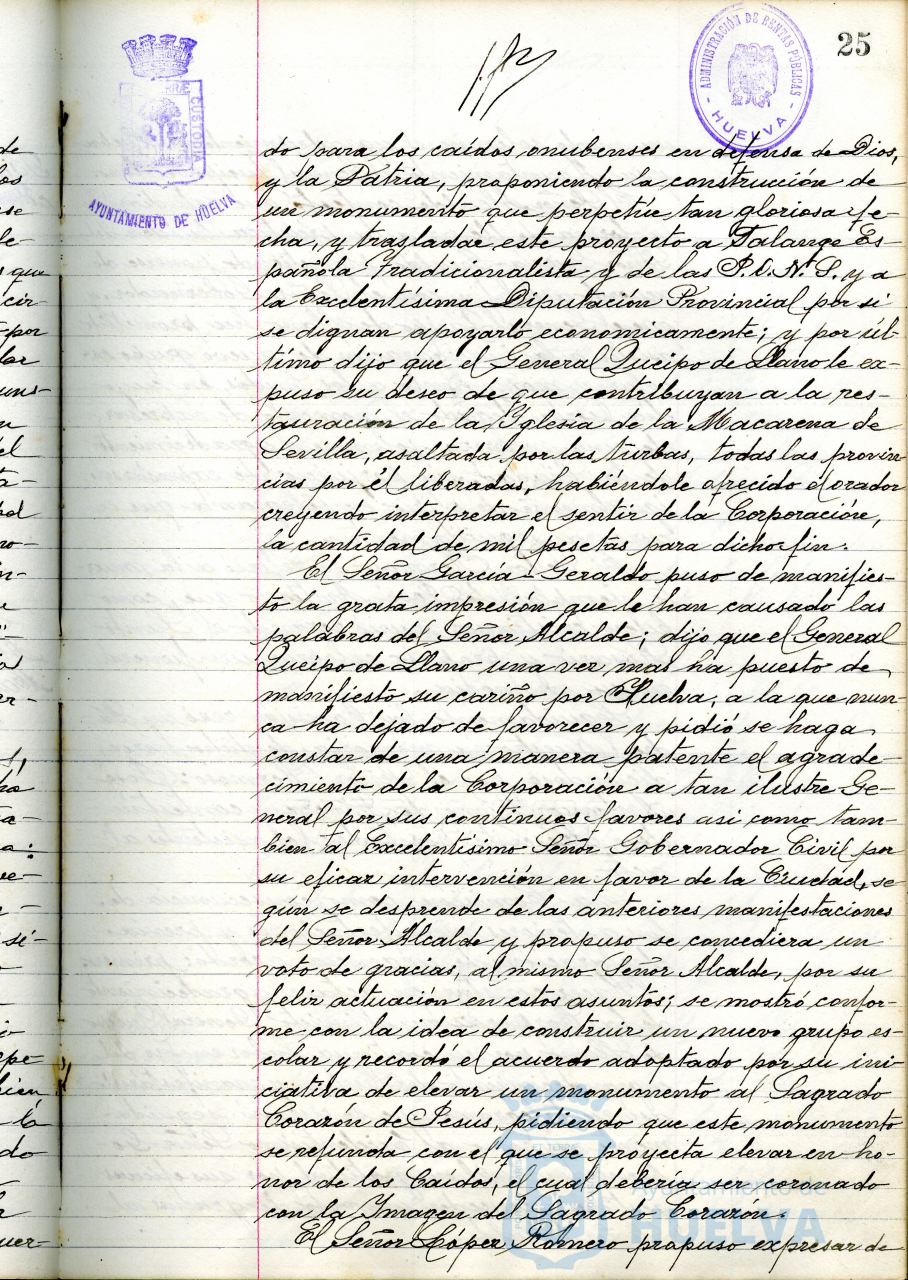 25
ADMINISTRACIÓN DE RENTAS PÚBLICAS
- HUELVA -
CUSTODIA
AYUNTAMIENTO DE HUELVA
do para los caídos onubenses en defensa de Dios,
y la Patria, proponiendo la construcción de
un monumento que perpetúe tan gloriosa fe-
cha, y trasladar este proyecto a Falange Es-
pañola Tradicionalista y de las J.O.N.S. y a
la Excelentísima Diputación Provincial por si
se dignan apoyarlo economicamente; y por úl-
timo dijo que el General Queipo de Llano le ex-
puso su deseo de que contribuyan a la res-
tauración de la Yglesia de la Macarena de
Sevilla, asaltada por las turbas, todas las provin
cias por él liberadas, habiéndole ofrecido el orador
creyendo interpretar el sentir de la Corporación,
la cantidad de mil pesetas para dicho fin.
El Señor García-Geraldo puso de manifies-
to la grata impresión que le han causado las
palabras del Señor Alcalde; dijo que el General
Queipo de Llano una vez mas ha puesto de
manifiesto su cariño por Huelva, a la que nun-
ca ha dejado de favorecer y pidió se haga
constar de una manera patente el agrade-
cimiento de la Corporación a tan ilustre Ge-
neral por sus continuos favores asi como tam-
bien al Excelentísimo Señor Gobernador Civil por
su eficaz intervención en favor de la Ciudad, se-
gún se desprende de las anteriores manifestaciones
del Señor Alcalde y propuso se concediera un
voto de gracias, al mismo Señor Alcalde, por su
feliz actuación en estos asuntos; se mostró confor-
me con la idea de construir un nuevo grupo es-
colar y recordó el acuerdo adoptado por su ini-
ciativa de elevar un monumento al Sagrado
Corazón de Jesús, pidiendo que este monumento
se refunda con el que se proyecta elevar en ho-
nor de los Caídos, el cual debería ser coronado
con la Ymagen del Sagrado Corazón.
El Señor López Romero propuso expresar de
Ayuntamiento de
HUELVA